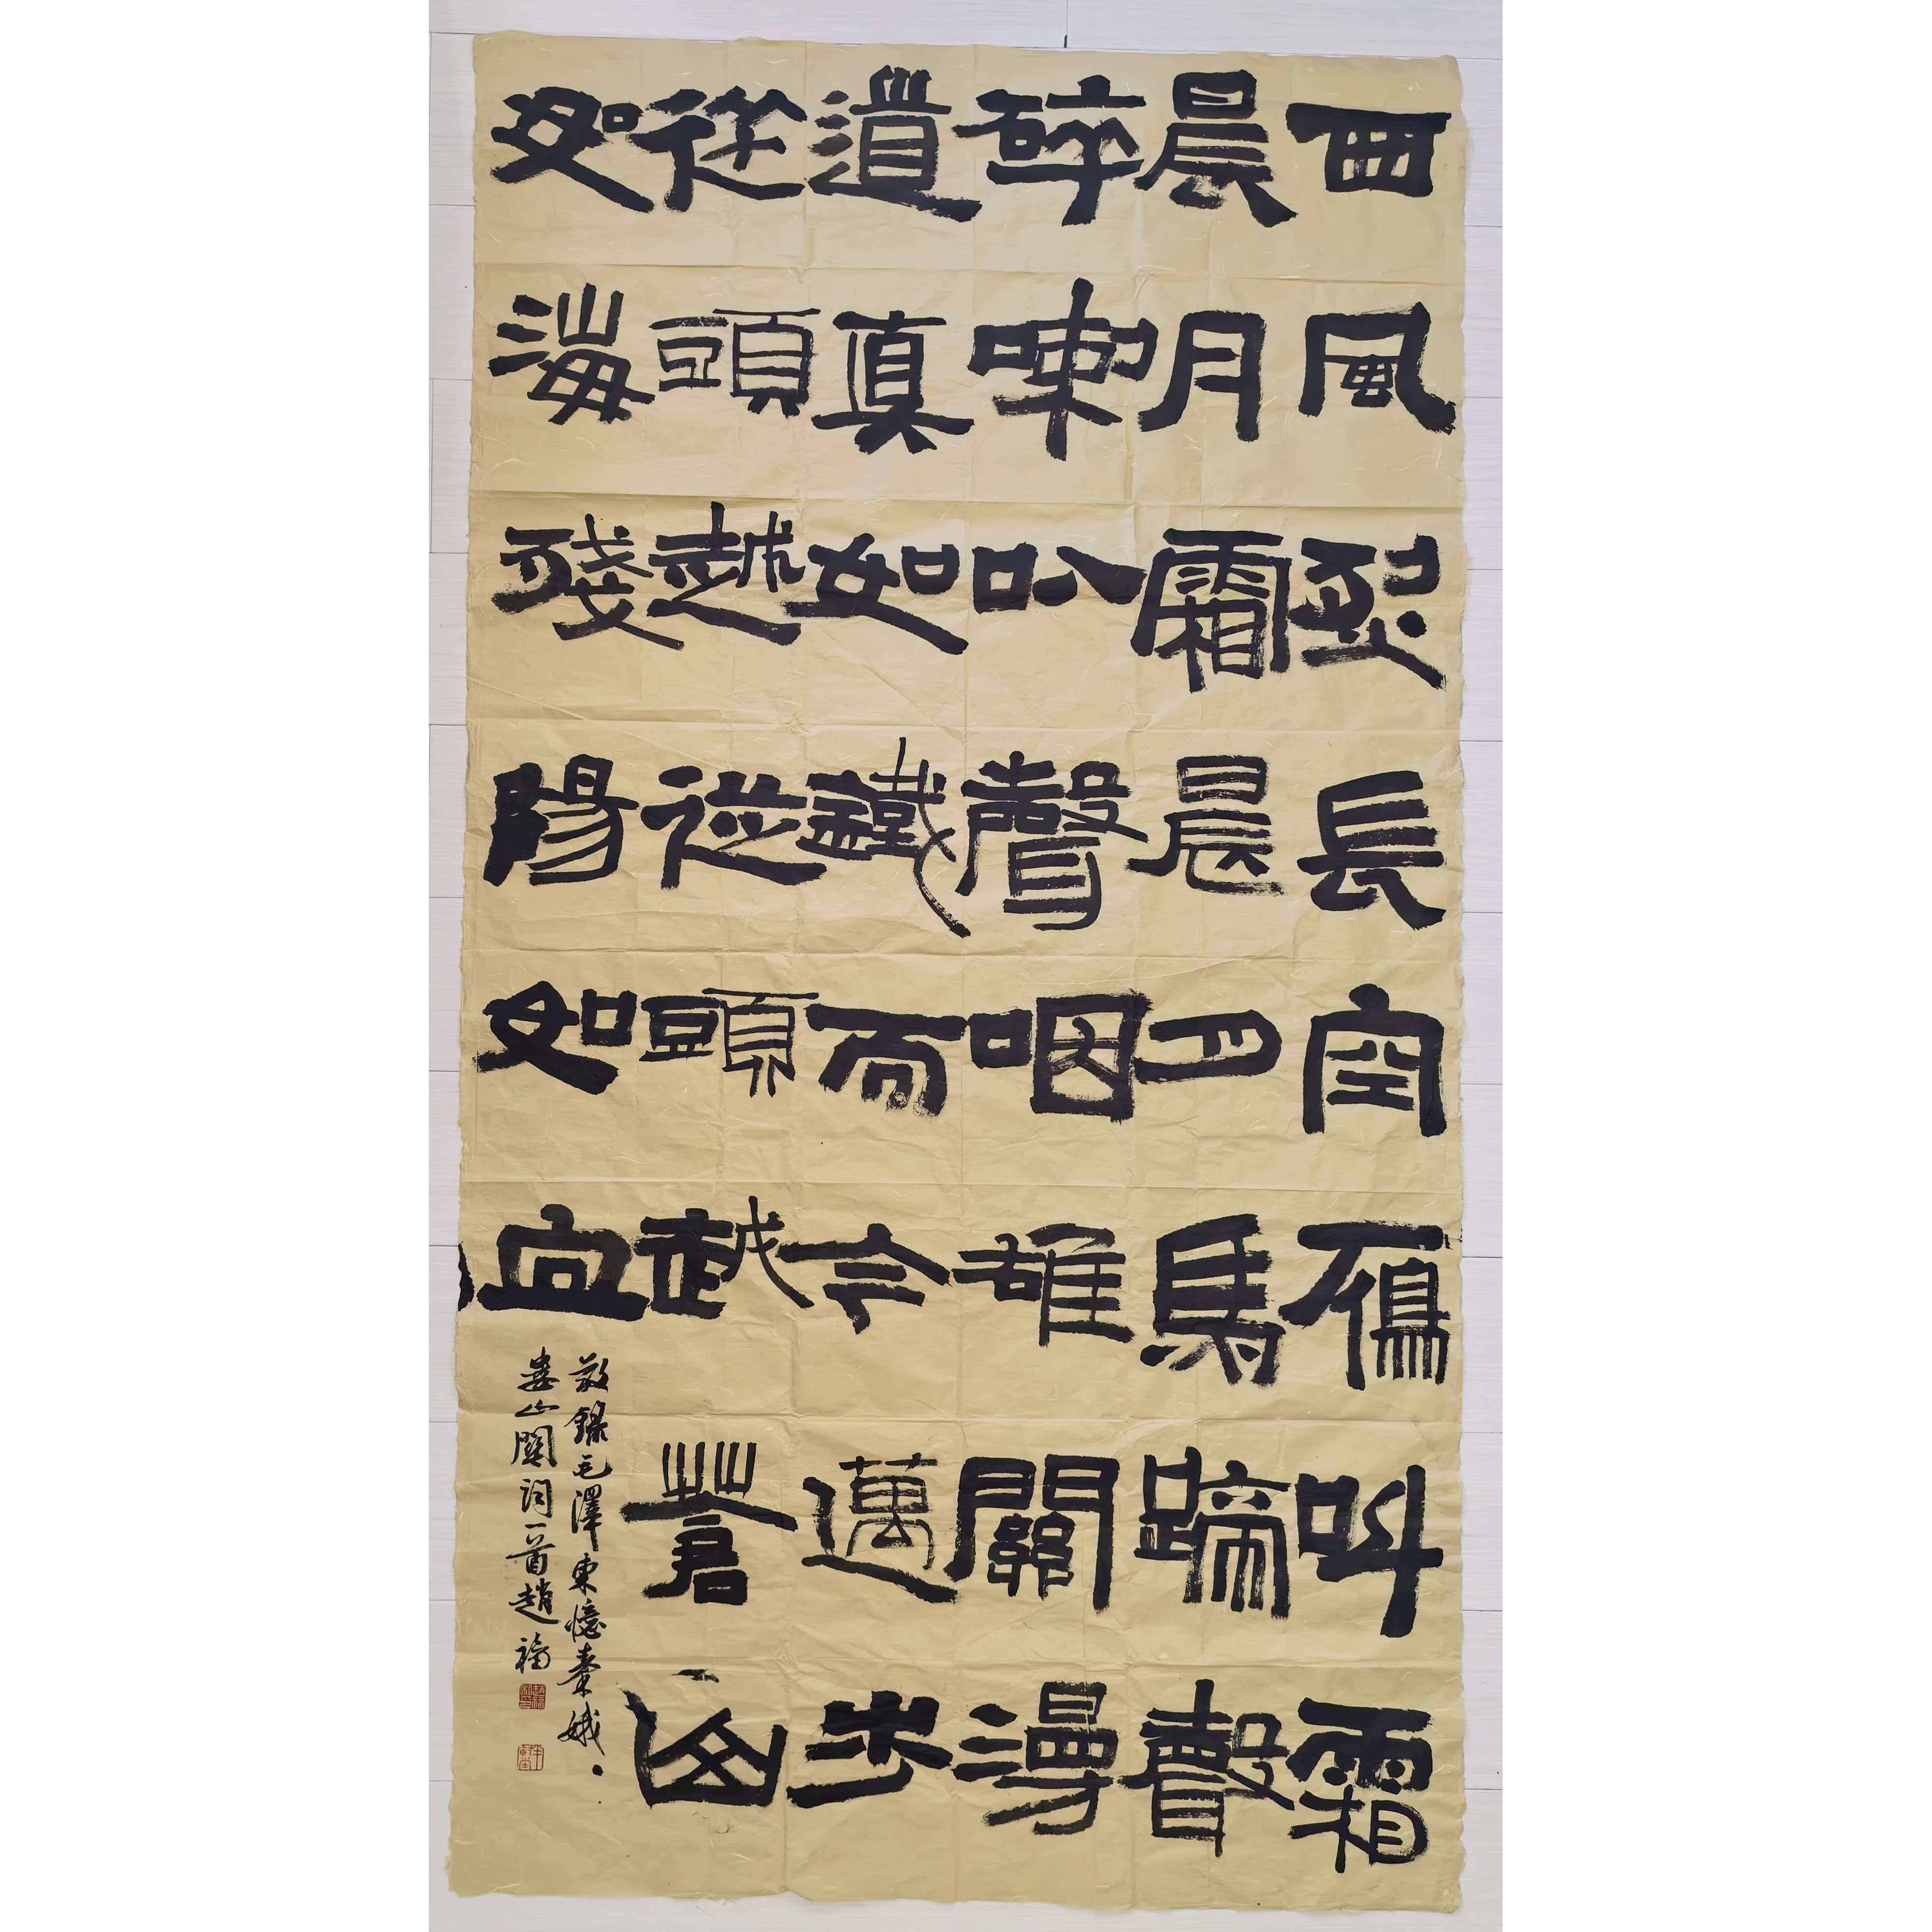 西風烈長空鴈叫霜
晨月霜晨月馬蹄聲
碎喇叭聲咽雄關漫
道真如鐵而今邁步
從頭越從頭越蒼山
如海殘陽如血
敬錄毛澤東憶秦娥·
婁山關詞一首趙福